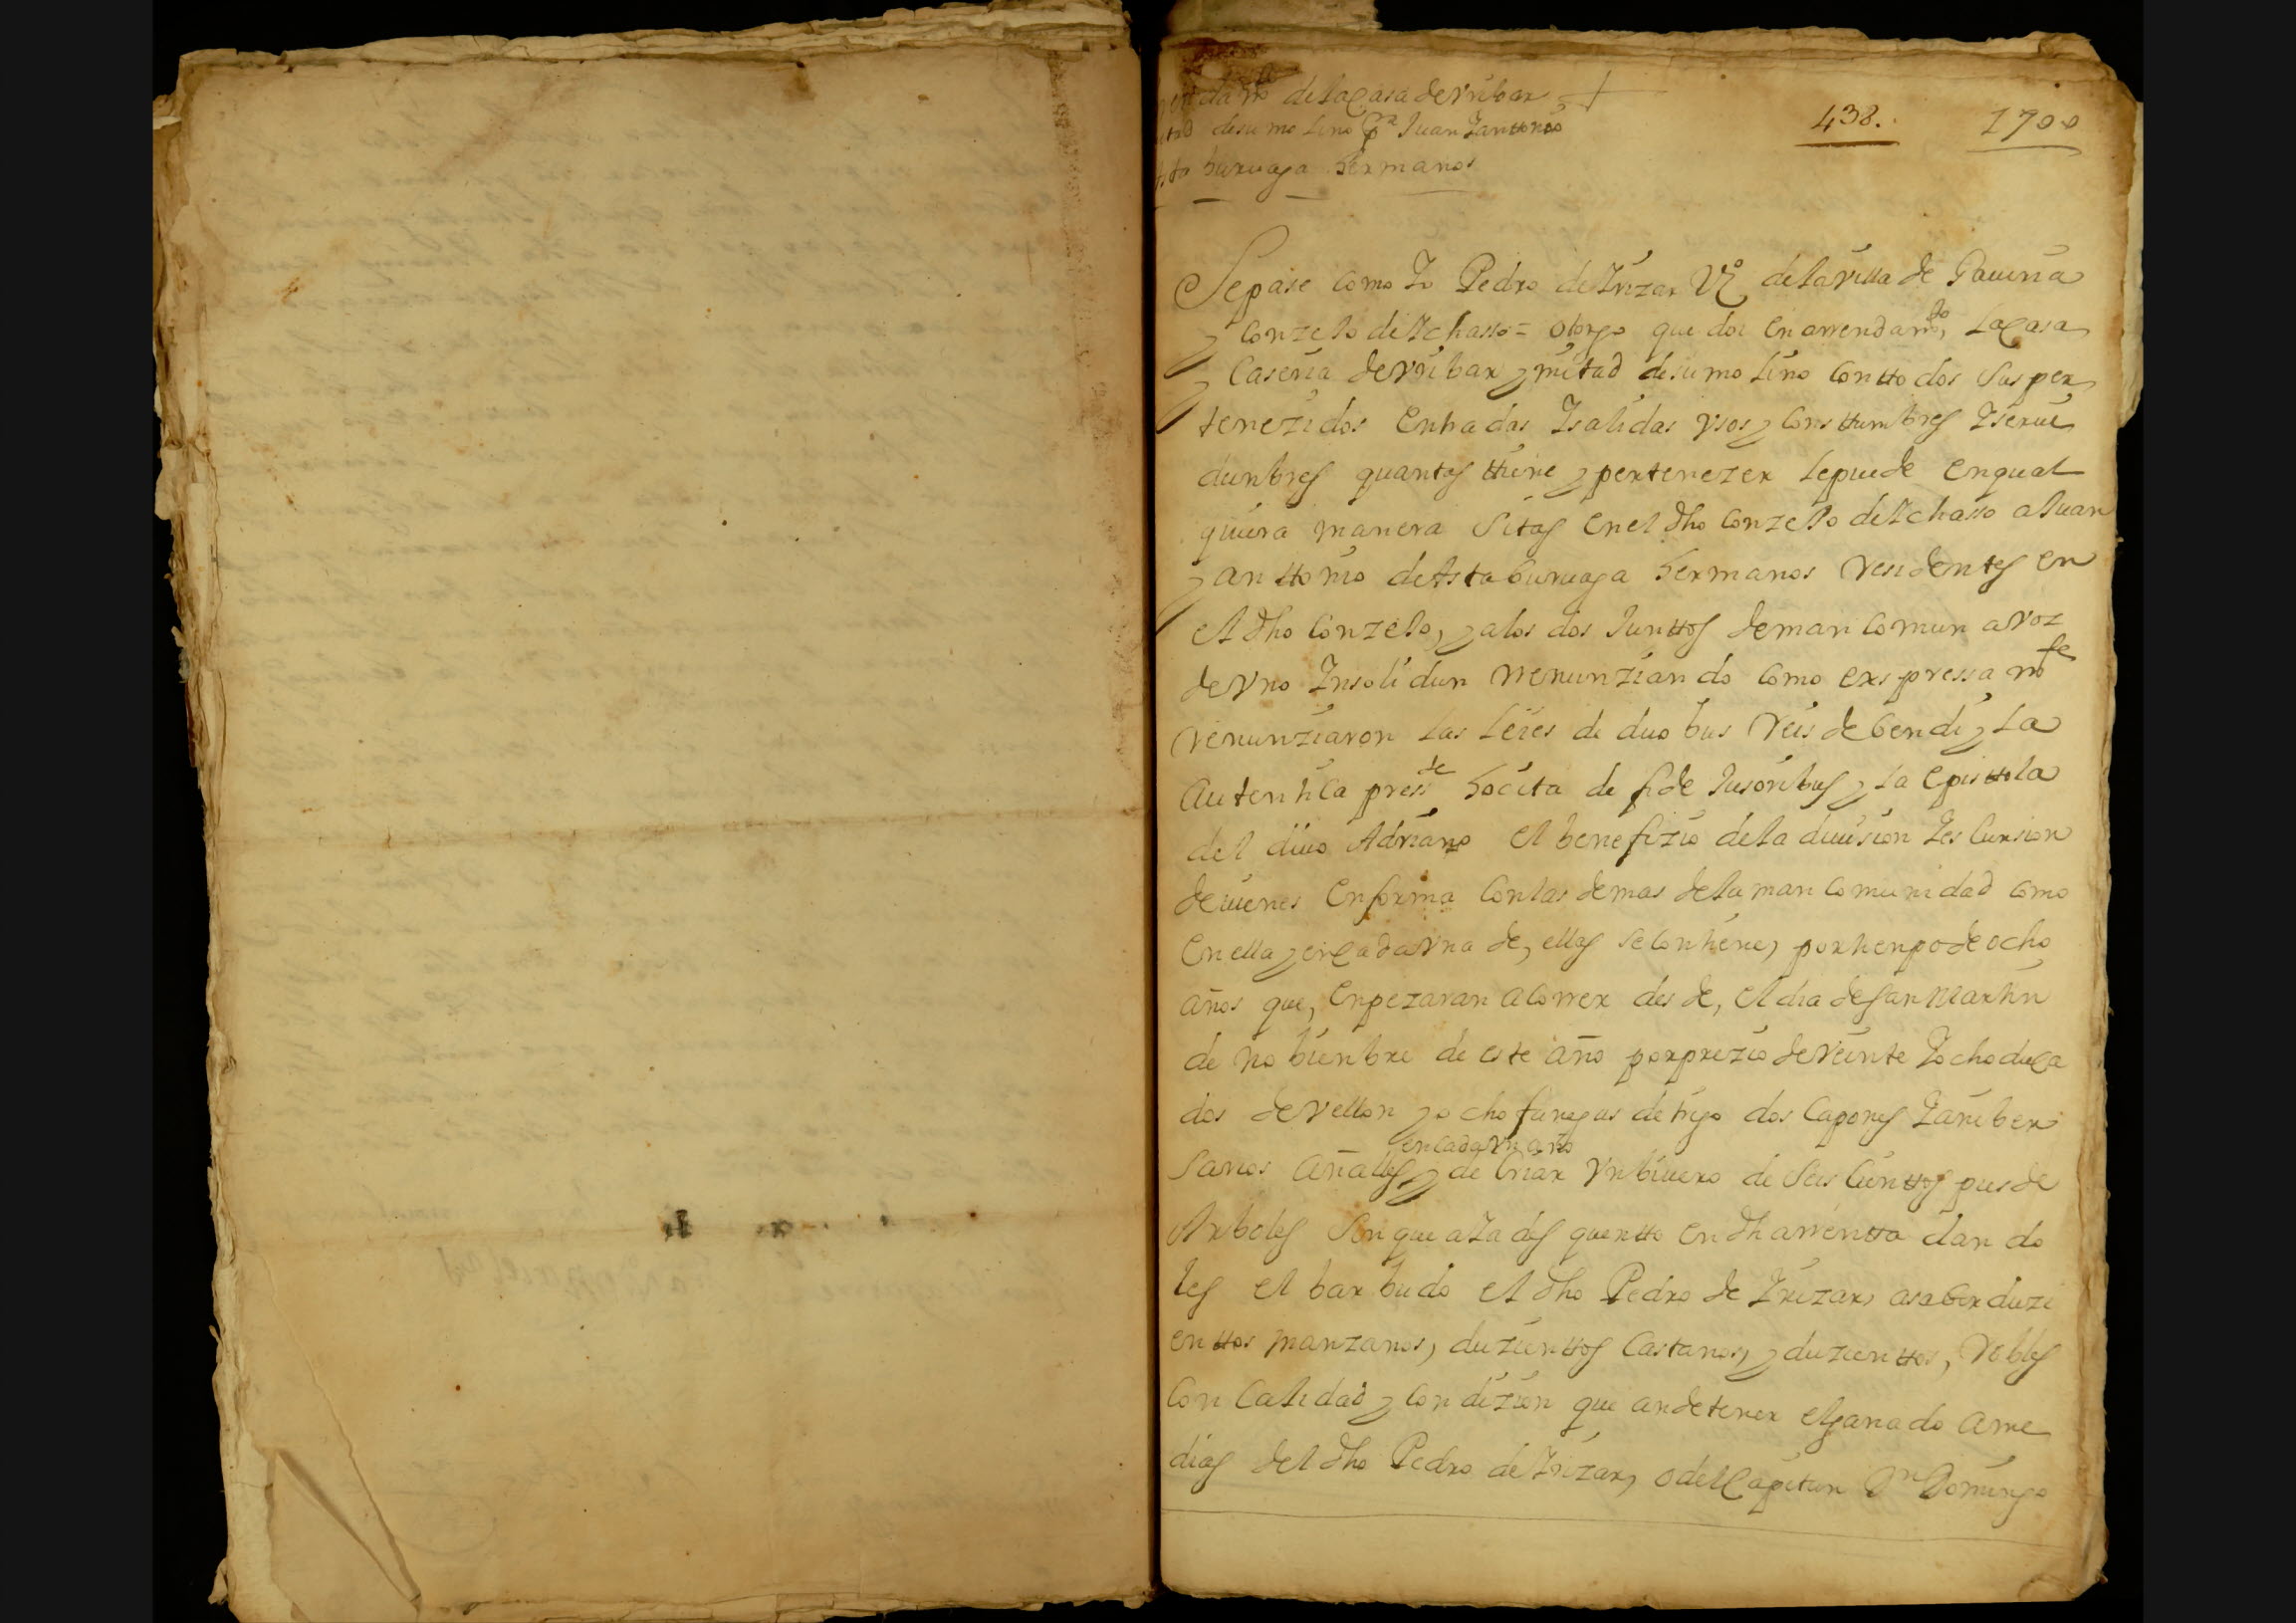 dam.to de la casa de Vribar
mitad de su molino Pr Juan Yanttonio
Asta buruaga hermanos
438. 1700
Sepase como Yo Pedro de Yrizar Vº de la villa de Gauiria
y conzejo de Ychasso = otorgo que doi en arrendamto, la casa
y Caseria de Vribar y mitad de su molino con ttodos sus per
tenezidos entradas Ysalidas Vsos y consttumbres Yserui
dunbres quantas ttiene y pertenezer le puede en qual
quiera manera sitas en el dho conzejo de Ychasso a Juan
y anttonio de Astaburuaga hermanos residentes en
el dho conzejo, y a los dos Junttos de man comun a voz
de Vno Ynsolidun renunziando como exspressamte
renunziaron las leies de duobus reis debendi y la
autentica presste hocita de fide Jusoribus y la episttola
del diuo Adriano el benefizio de la diuision Yescursion
de uienes en forma con las demas de la mancomunidad como
en ella y en cada Vna de, ellas se contiene, por tienpo de ocho
años que, enpezaran a correr desde, el dia de san Martin
de nobienbre de este año por prezio de veinte Yocho duca
dos de vellon y ocho fanegas de trigo dos capones Yaniber
sarios añalles y de criar Vn biuero de seis cienttos pies de
en cada Vn año
Arboles sin que a Yadesquentto en dha rrentta dando
les el barbudo el dho Pedro de Yrizar, a saber duzi
enttos manzanos, duzienttos castanos, y duzienttos, robles
con calidad y condizion que an de tener el ganado a me
dias del dho Pedro de Yrizar, o del Capitan Dn Domingo